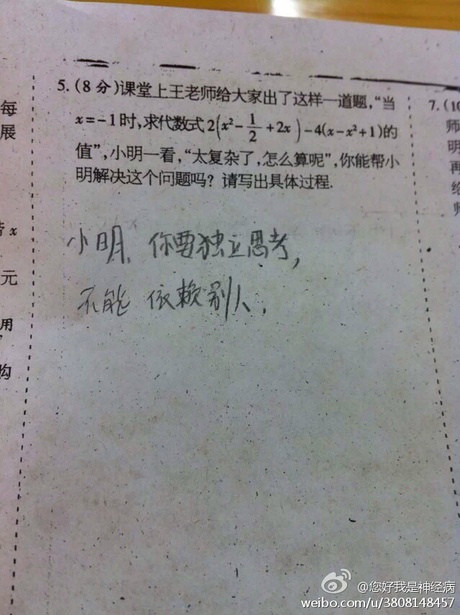 5.(8分)课堂上王老师给大家出了这样一道题,“当
x=-1时,求代数式2(x²-1/2+2x)-4(x-x²+1)的
值”,小明一看,“太复杂了,怎么算呢”,你能帮小
明解决这个问题吗?请写出具体过程.
小明、你要独立思考,
不能依赖别人.
每
展
x
元
用
构
7.(10
师
明
再
给
师
@您好我是神经病
weibo.com/u/3808148457